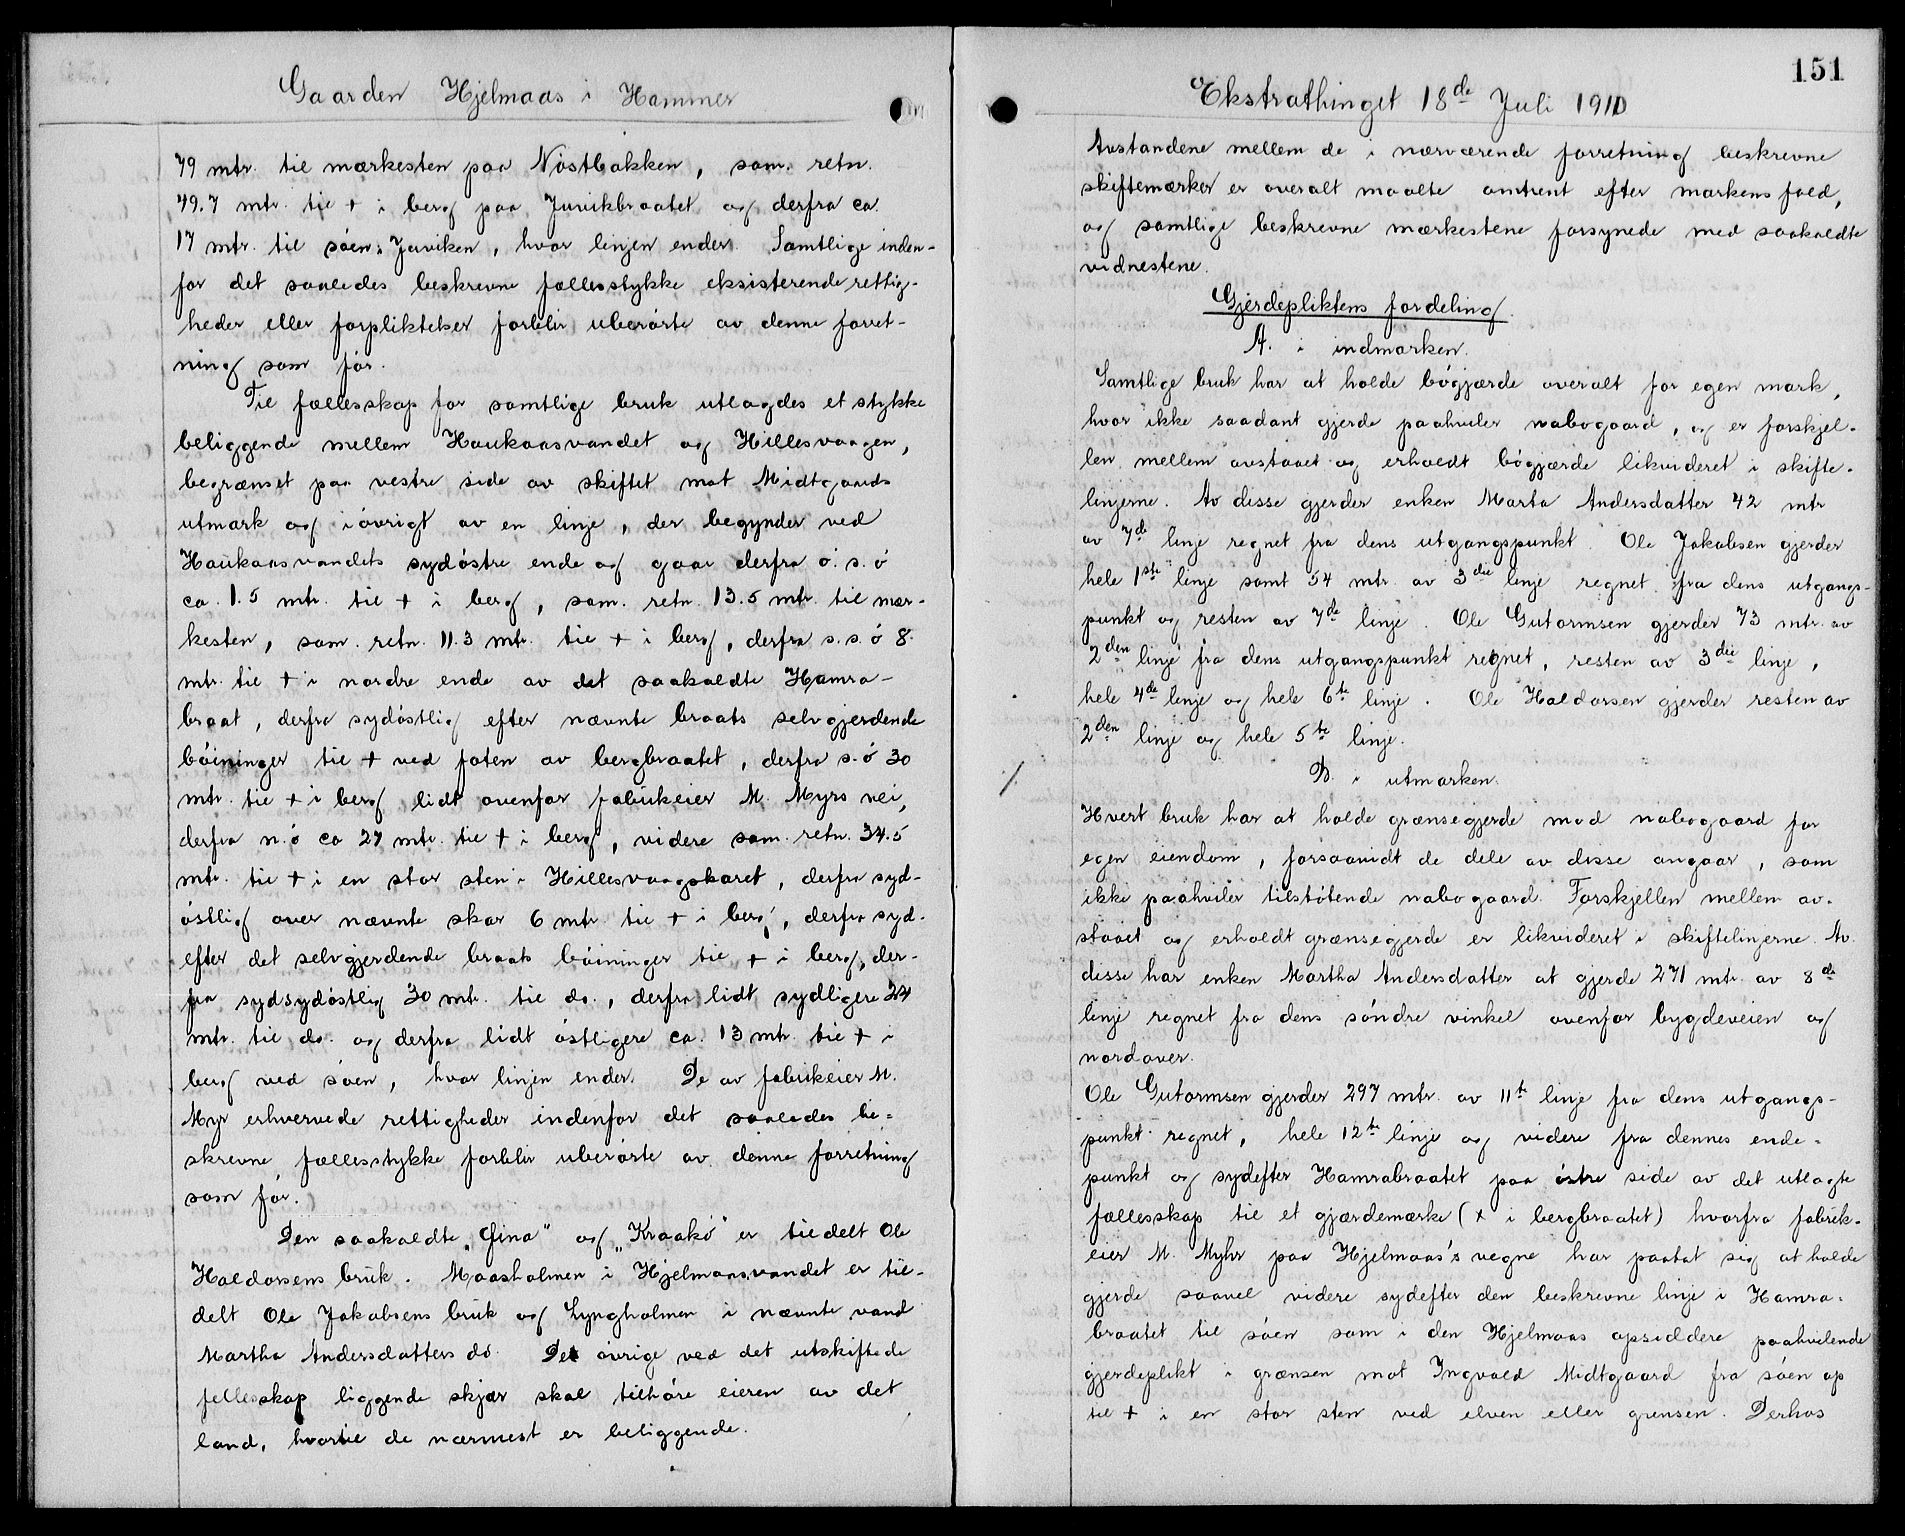 Gaarden Hjelmaas i Hammer
79 mtr. til mærkesten paa Nöstbakken, sam. retn.
49.7 mtr. til + i berg paa Juvikbraatet og derfra ca.
17 mtr. til söen i Juviken, hvor linjen ender. Samtlige inden-
for det saaledes beskrevne fællesstykke eksisterende rettig-
heder eller forpliktelser forblir uberörte av denne forret-
ning som för.
Til fællesskap for samtlige bruk utlagdes et stykke
beliggende mellem Haukaasvandet og Hillesvaagen,
begrænset paa vestre side av skiftet mot Midtgaards
utmark og iövrigt av en linje, der begynder ved
Haukaasvandets sydöstre ende og gaar derfra ö. s. ö
ca. 1.5 mtr. til + i berg, sam. retn. 13.5 mtr. til mær-
kesten, sam. retn. 11.3 mtr. til + i berg, derfra s. s. ö 8.
mtr. til + i nordre ende av det saakaldte Hamra-
braat, derfra sydöstlig efter nævnte braats selvgjerdende
böininger til + ved foten av bergbraatet, derfra s. ö 30
mtr. til + i berg lidt ovenfor fabrikeier M. Myrs vei,
derfra n. ö ca 27 mtr. til + i berg, videre sam. retn. 34.5
mtr. til + i en stor sten i Hillesvaagskaret, derfra syd-
östlig over nævnte skar 6 mtr til + i berg, derfra syd-
efter det selvgjerdende braats böininger til + i berg, der-
fra sydsydöstlig 30 mtr. til do., derfra lidt sydligere 24
mtr. til do. og derfra lidt östligere ca. 13 mtr. til + i
berg ved söen, hvor linjen ender. De av fabrikeier M.
Myr erhvervede rettigheder indenfor det saaledes be-
skrevne fællesstykke forblir uberörte av denne forretning
som för.
Den saakaldte "Gina" og "Kraakö" er tildelt Ole
Haldorsens bruk. Maasholmen i Hjelmaasvandet er til-
delt Ole Jakobsens bruk og Lyngholmen i nævnte vand
Martha Andersdatters do. De övrige ved det utskiftede
fellesskap liggende skjær skal tilhöre eieren av det
land, hvortil de nærmest er beliggende.
151
Ekstrathinget 18de Juli 1910
Avstandene mellem de i nærværende forretning beskrevne
skiftemærker er overalt maalte omtrent efter markens fald,
og samtlige beskrevne mærkestene forsynede med saakaldte
vidnestene.
Gjerdepliktens fordeling.
A. i indmarken.
Samtlige bruk har at holde bögjærde overalt for egen mark,
hvor ikke saadant gjerde paahviler nabogaard, og er forskjel-
len mellem avstaaet og erholdt bögjærde likvideret i skifte-
linjerne. Av disse gjerder enken Marta Andersdatter 42 mtr
av 7de linje regnet fra dens utgangspunkt. Ole Jakobsen gjerder
hele 1ste linje samt 54 mtr. av 3die linje regnet fra dens utgangs-
punkt og resten av 7de linje. Ole Gutormsen gjerder 73 mtr. av
2den linje fra dens utgangspunkt regnet, resten av 3die linje,
hele 4de linje og hele 6te linje. Ole Haldorsen gjerder resten av
2den linje og hele 5te linje.
B. i utmarken.
Hvert bruk har at holde grænsegjerde mod nabogaard for
egen eiendom, forsaavidt de dele av disse angaar, som
ikke paahviler tilstötende nabogaard. Forskjellen mellem av-
staaet og erholdt grænsegjerde er likvideret i skiftelinjerne. Av
disse har enken Martha Andersdatter at gjerde 271 mtr. av 8de
linje regnet fra dens söndre vinkel ovenfor bygdeveien og
nordover.
Ole Gutormsen gjerder 297 mtr. av 11te linje fra dens utgangs-
punkt regnet, hele 12te linje og videre fra dennes ende-
punkt og sydefter Hamrabraatet paa östre side av det utlagte
fællesskap til et gjærdemærke (+ i bergbraatet) hvorfra fabrik-
eier M. Myhr paa Hjelmaas's vegne har paatat sig at holde
gjerde saavel videre sydefter den beskrevne linje i Hamra-
braatet til söen som i den Hjelmaas opsiddere paahvilende
gjerdeplikt i grænsen mot Ingvald Midtgaard fra söen op
til + i en stor sten ved elven eller grensen. Derhos